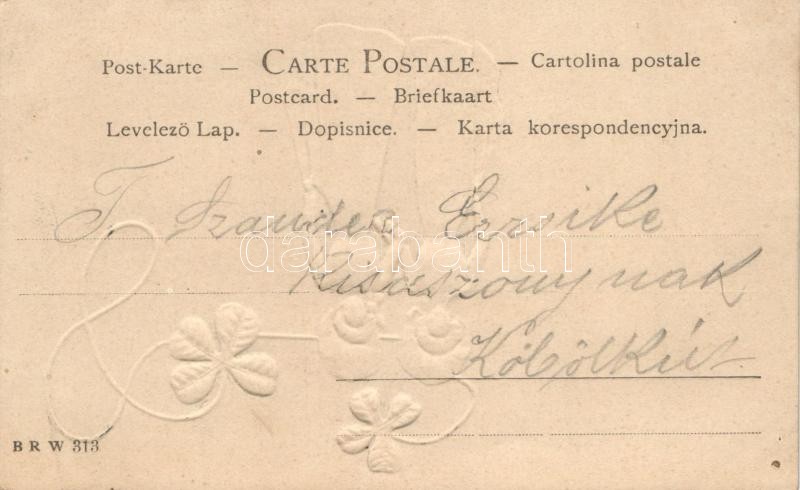 Post-Karte — CARTE POSTALE. — Cartolina postale
Postcard. — Briefkaart
Levelező Lap. — Dopisnice. — Karta korespondencyjna.
T. Erzsike
darabanth
Kisaszonynak
Köbölkút
B R W 313